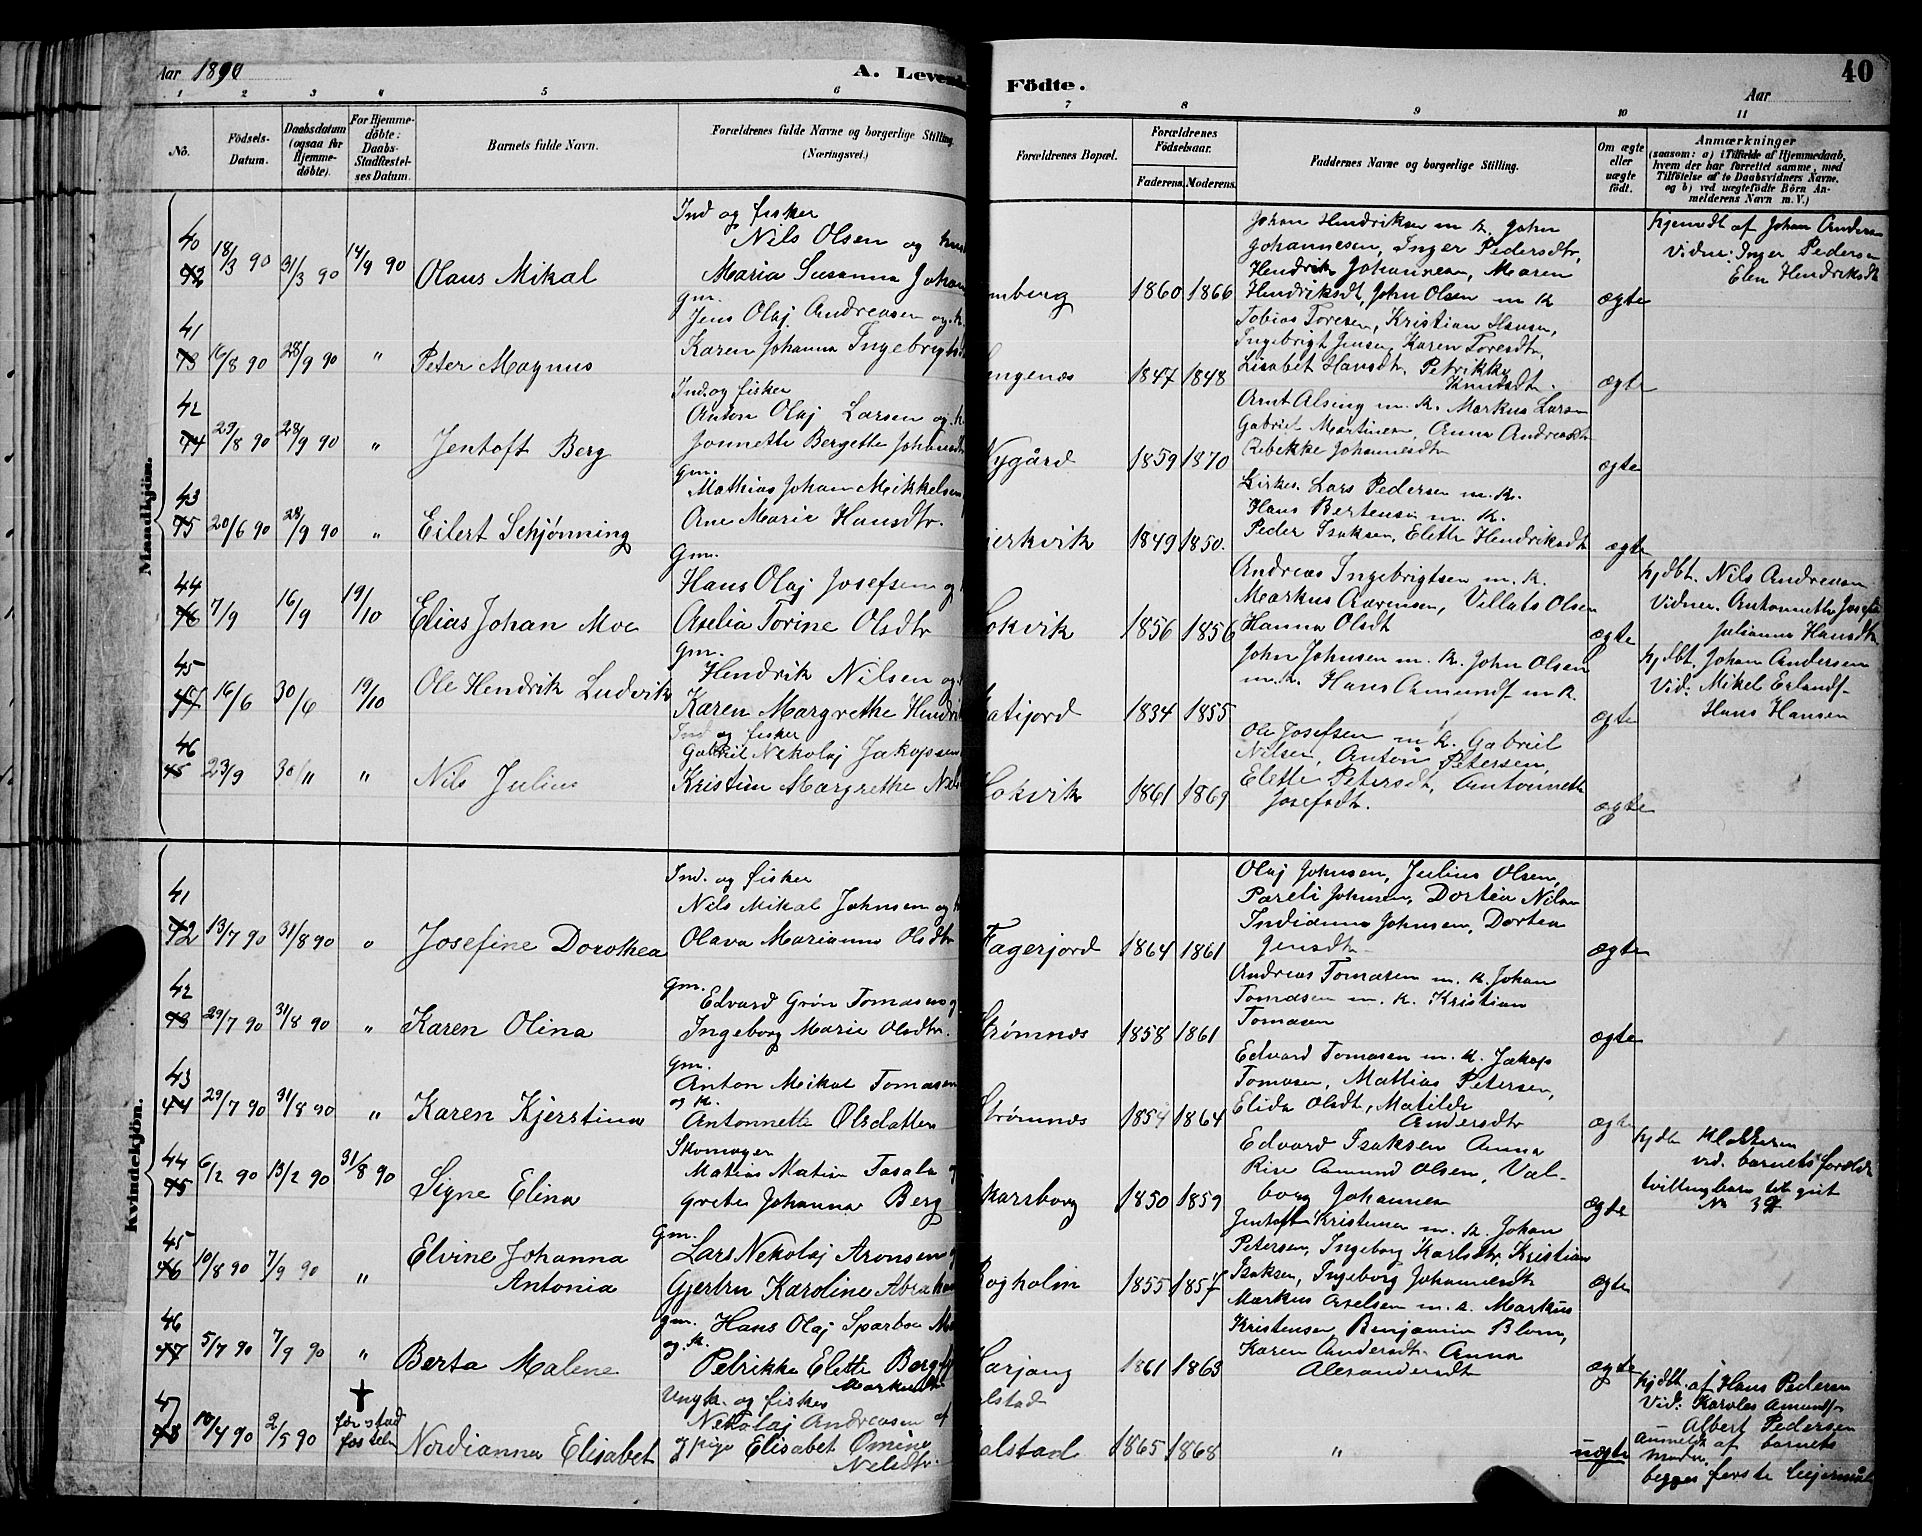 Aar 1890
A. Levende
Födte.
40
Aar
1 2 3 4 5 6 7 8 9 10 11
No.
Födsels-Datum.
Daabsdatum (ogsaa for Hjemme-döbte).
For Hjemme-döbte: Daabs-Stadfæstel-ses Datum.
Barnets fulde Navn.
Forældrenes fulde Navne og borgerlige Stilling. (Næringsvei.)
Forældrenes Bopæl.
Forældrenes Födselsaar.
Faderens. Moderens.
Faddernes Navne og borgerlige Stilling.
Om ægte eller uægte födt.
Anmærkninger
(saasom: a) i Tilfælde af Hjemmedaab,
hvem der har forrettet samme, med
Tilföielse af to Daabsvidners Navne,
og b) ved uægtefödte Börn An-
melderens Navn m. V.)
Mandkjön.
40 42 18/3 90 31/3 90 14/9 90 Olaus Mikal
Ind og fisker
Nils Olsen og
Maria Susanna Johan
mberg 1860 1866
Johan Hendriksen m. k. John
Johannesen, Inger Pedersdtr,
Hendrik Johannesen, Maren
Hendriksdt, John Olsen m k
ægte
hjemdt af Johan Andersen
Vidne: Inger Pedersen
Elen Hendriksdt
41 43 16/8 90 28/9 90 " Peter Magnus
gm.
Jens Olaj Andreasen og k.
Karen Johanna Ingebrigts
ngenæs 1847 1848
Tobias Toresen, Kristian Hansen,
Ingebrigt Jensen, Karen Toresdtr,
Lisabet Hansdt, Petrikke
Knudsdt.
ægte
42 44 29/8 90 28/9 90 " Jentoft Berg
Ind. og fisker
Anton Olaj Larsen og k
Jonnette Bergette Johansdt
Nygård 1859 1870
Arnt Alsing m. k. Markus Larsen
Gabriel Martinsen, Anna Andreasdt
Rebekke Johannesdt
ægte
43 45 20/6 90 28/9 90 " Eilert Schjønning
gm.
Mathias Johan Mikkelsen
Ane Marie Hansdtr.
jerkvik 1849 1850.
Kirkes. Lars Pedersen m. k.
Hans Bertensen m. k.
Peder Isaksen, Elette Hendriksdt
ægte
44 46 7/9 16/9 19/10 Elias Johan Moe
Gm.
Hans Olaj Josefsen og
Axelia Torine Olsdtr
okvik 1856 1856
Andreas Ingebrigtsen m. k.
Markus Aarensen, Villats Olsen
Hanna Olsdt
ægte
hjdbt. Nils Andreasen
Vidner. Antonnette Josefs
Julianna Hansdt
45 47 16/6 30/6 19/10 Ole Hendrik Ludvik
gm.
Hendrik Nilsen og
Karen Margrethe Hendri
atijord 1834 1855
John Johnsen m. k. John Olsen
m. k. Hans Amundf m k.
ægte
hjdbt. Johan Andersen
Vid. Mikel Erlandf
Hans Hansen
46 45 23/9 30/11 " Nils Julius
Ind og fisker
Gabriel Nekolaj Jakopsen
Kristine Margrethe Nils
okvik 1861 1869
Ole Josefsen m k. Gabriel
Nilsen, Anton Petersen,
Elette Petersdt, Antonnette
Josefsdt.
ægte
Kvindekjön.
41 42 13/7 90 31/8 90 " Josefine Dorothea
Ind. og fisker
Nils Mikal Johnsen og k
Olava Marianna Olsdtr
Fagerjord 1864 1861
Olaj Johnsen, Julius Olsen,
Pareli Johnsen, Dortea Nilsen
Indianna Johnsen, Dortea
Jensdt
ægte
42 43 29/7 90 31/8 90 " Karen Olina
gm.
Edvard Grøn Tomasen og
Ingeborg Marie Olsdtr.
Strømnæs 1858 1861
Andreas Tomasen m. k. Johan
Tomasen m. k. Kristian
Tomasen
ægte
43 44 29/7 90 31/8 90 " Karen Kjerstina
gm.
Anton Mikal Tomasen
og k.
Antonnette Olsdatter
Strømnæs 1854 1864
Edvard Tomasen m. k. Jakop
Tomasen, Mattias Petersen,
Elida Olsdt, Matilde
Andersdtr
ægte
44 45 6/2 90 13/2 90 31/8 90 Signe Elina
Skomager
Matias Matin Tasala og
grete Johanna Berg
karsborg 1850 1859
Edvard Isaksen Anna
Rise Amund Olsen, Val-
borg Johannesen
ægte
hjdbt Klokkeren
vid. barnets foreldr
tvillingbarn
No 39
45 46 10/8 90 7/9 90 " Elvine Johanna
Antonia
Gm.
Lars Nekolaj Aronsen og
Gjertru Karoline Abraha
ogholm 1855 1857
Jentoft Kristensen m. k. Johan
Petersen, Ingeborg Karlsdtr, Kristian
Isaksen, Ingeborg Johannesdt
ægte
46 47 5/7 90 7/9 90 " Berta Malene
gm. Hans Olaj Sparboe
og. k.
Petrikke Elette Berg
Markusdtr
Harjang 1861 1863
Markus Axelsen m. k. Markus
Kristensen Benjamin Blom,
Karen Andersdt. Anna
Alexandersdt
ægte
47 48 10/4 90 2/5 90 † før stad
fæsteln Nordianna Elisabet
Ungk. og fisker
Nekolaj Andreasen af
og pige Elisabet Omine
Nelsdtr.
lstad
alstad 1865 1868 "
uægte
hjdbt. af Hans Pedersen
Vid: Karoles Amundf
Albert Pedersen
Anmeldt af barnets
moder.
begges første leiermål